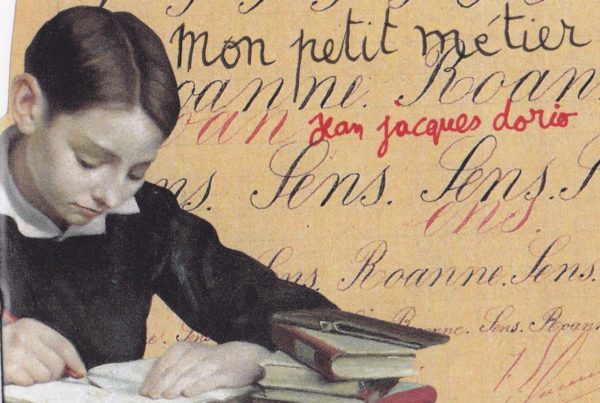 mon petit métier
oanne. Roan
oan
jean jacques dorio
ns. Sens. Sens. S
ens.
Sens. Roanne. Sens.
Roanne. Sens. Roann